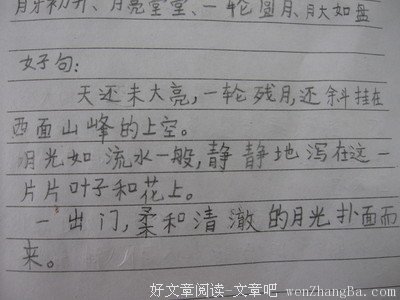 月牙初升、月亮堂堂、一轮圆月、月大如盘
好句：
天还未大亮，一轮残月，还斜挂在
西面山峰的上空。
月光如流水一般，静静地泻在这一
片片叶子和花上。
一出门，柔和清澈的月光扑面而
来。
好文章阅读-文章吧 wenZhangBa.com